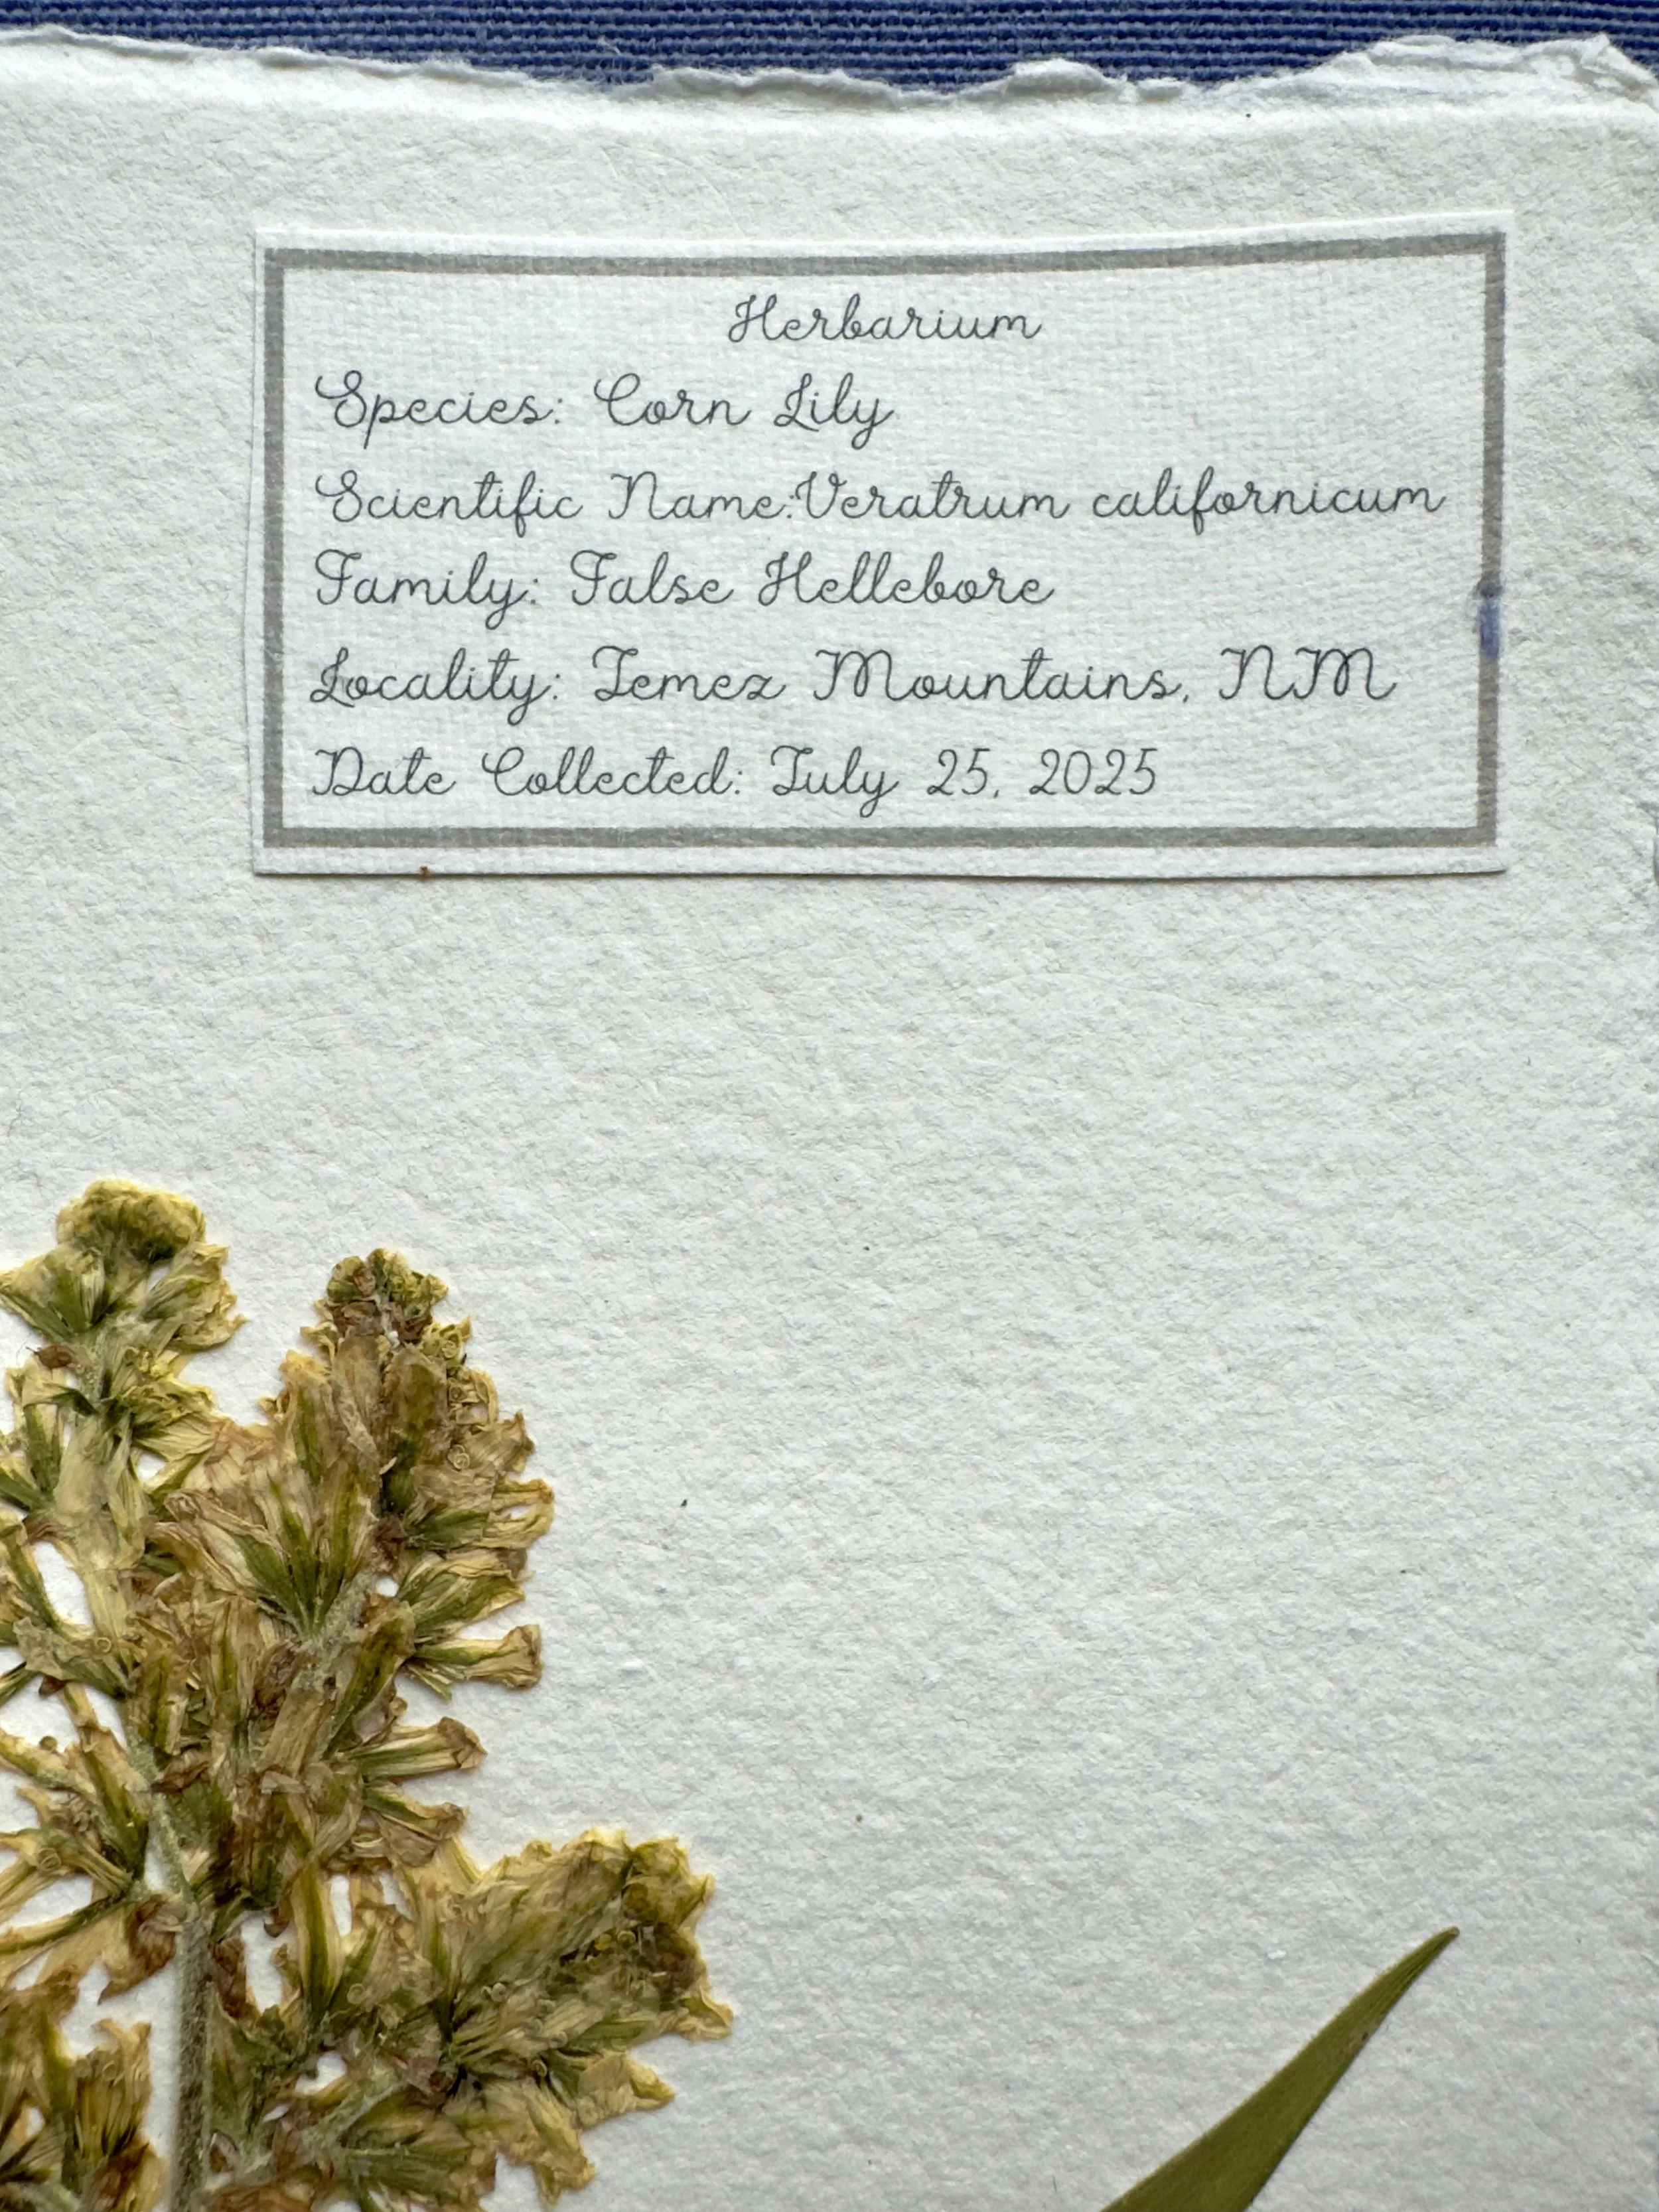 Herbarium
Species: Corn Lily
Scientific Name:Veratrum californicum
Family: False Hellebore
Locality: Jemez Mountains, NM
Date Collected: July 25, 2025